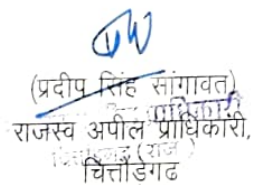 (प्रदीप सिंह सांगावत)
राजस्व अपील प्राधिकारी,
चित्तौडगढ